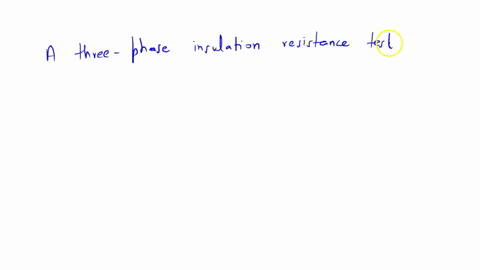 A three-phase insulation resistance test